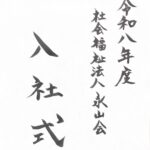 令和八年度
社会福祉法人永山会
入社式